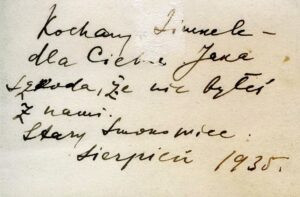 Kochany Zimnek –
dla Ciebie Jaka
szkoda, że nie byłeś
z nami.
Stary Smokowiec.
Sierpień 1935.